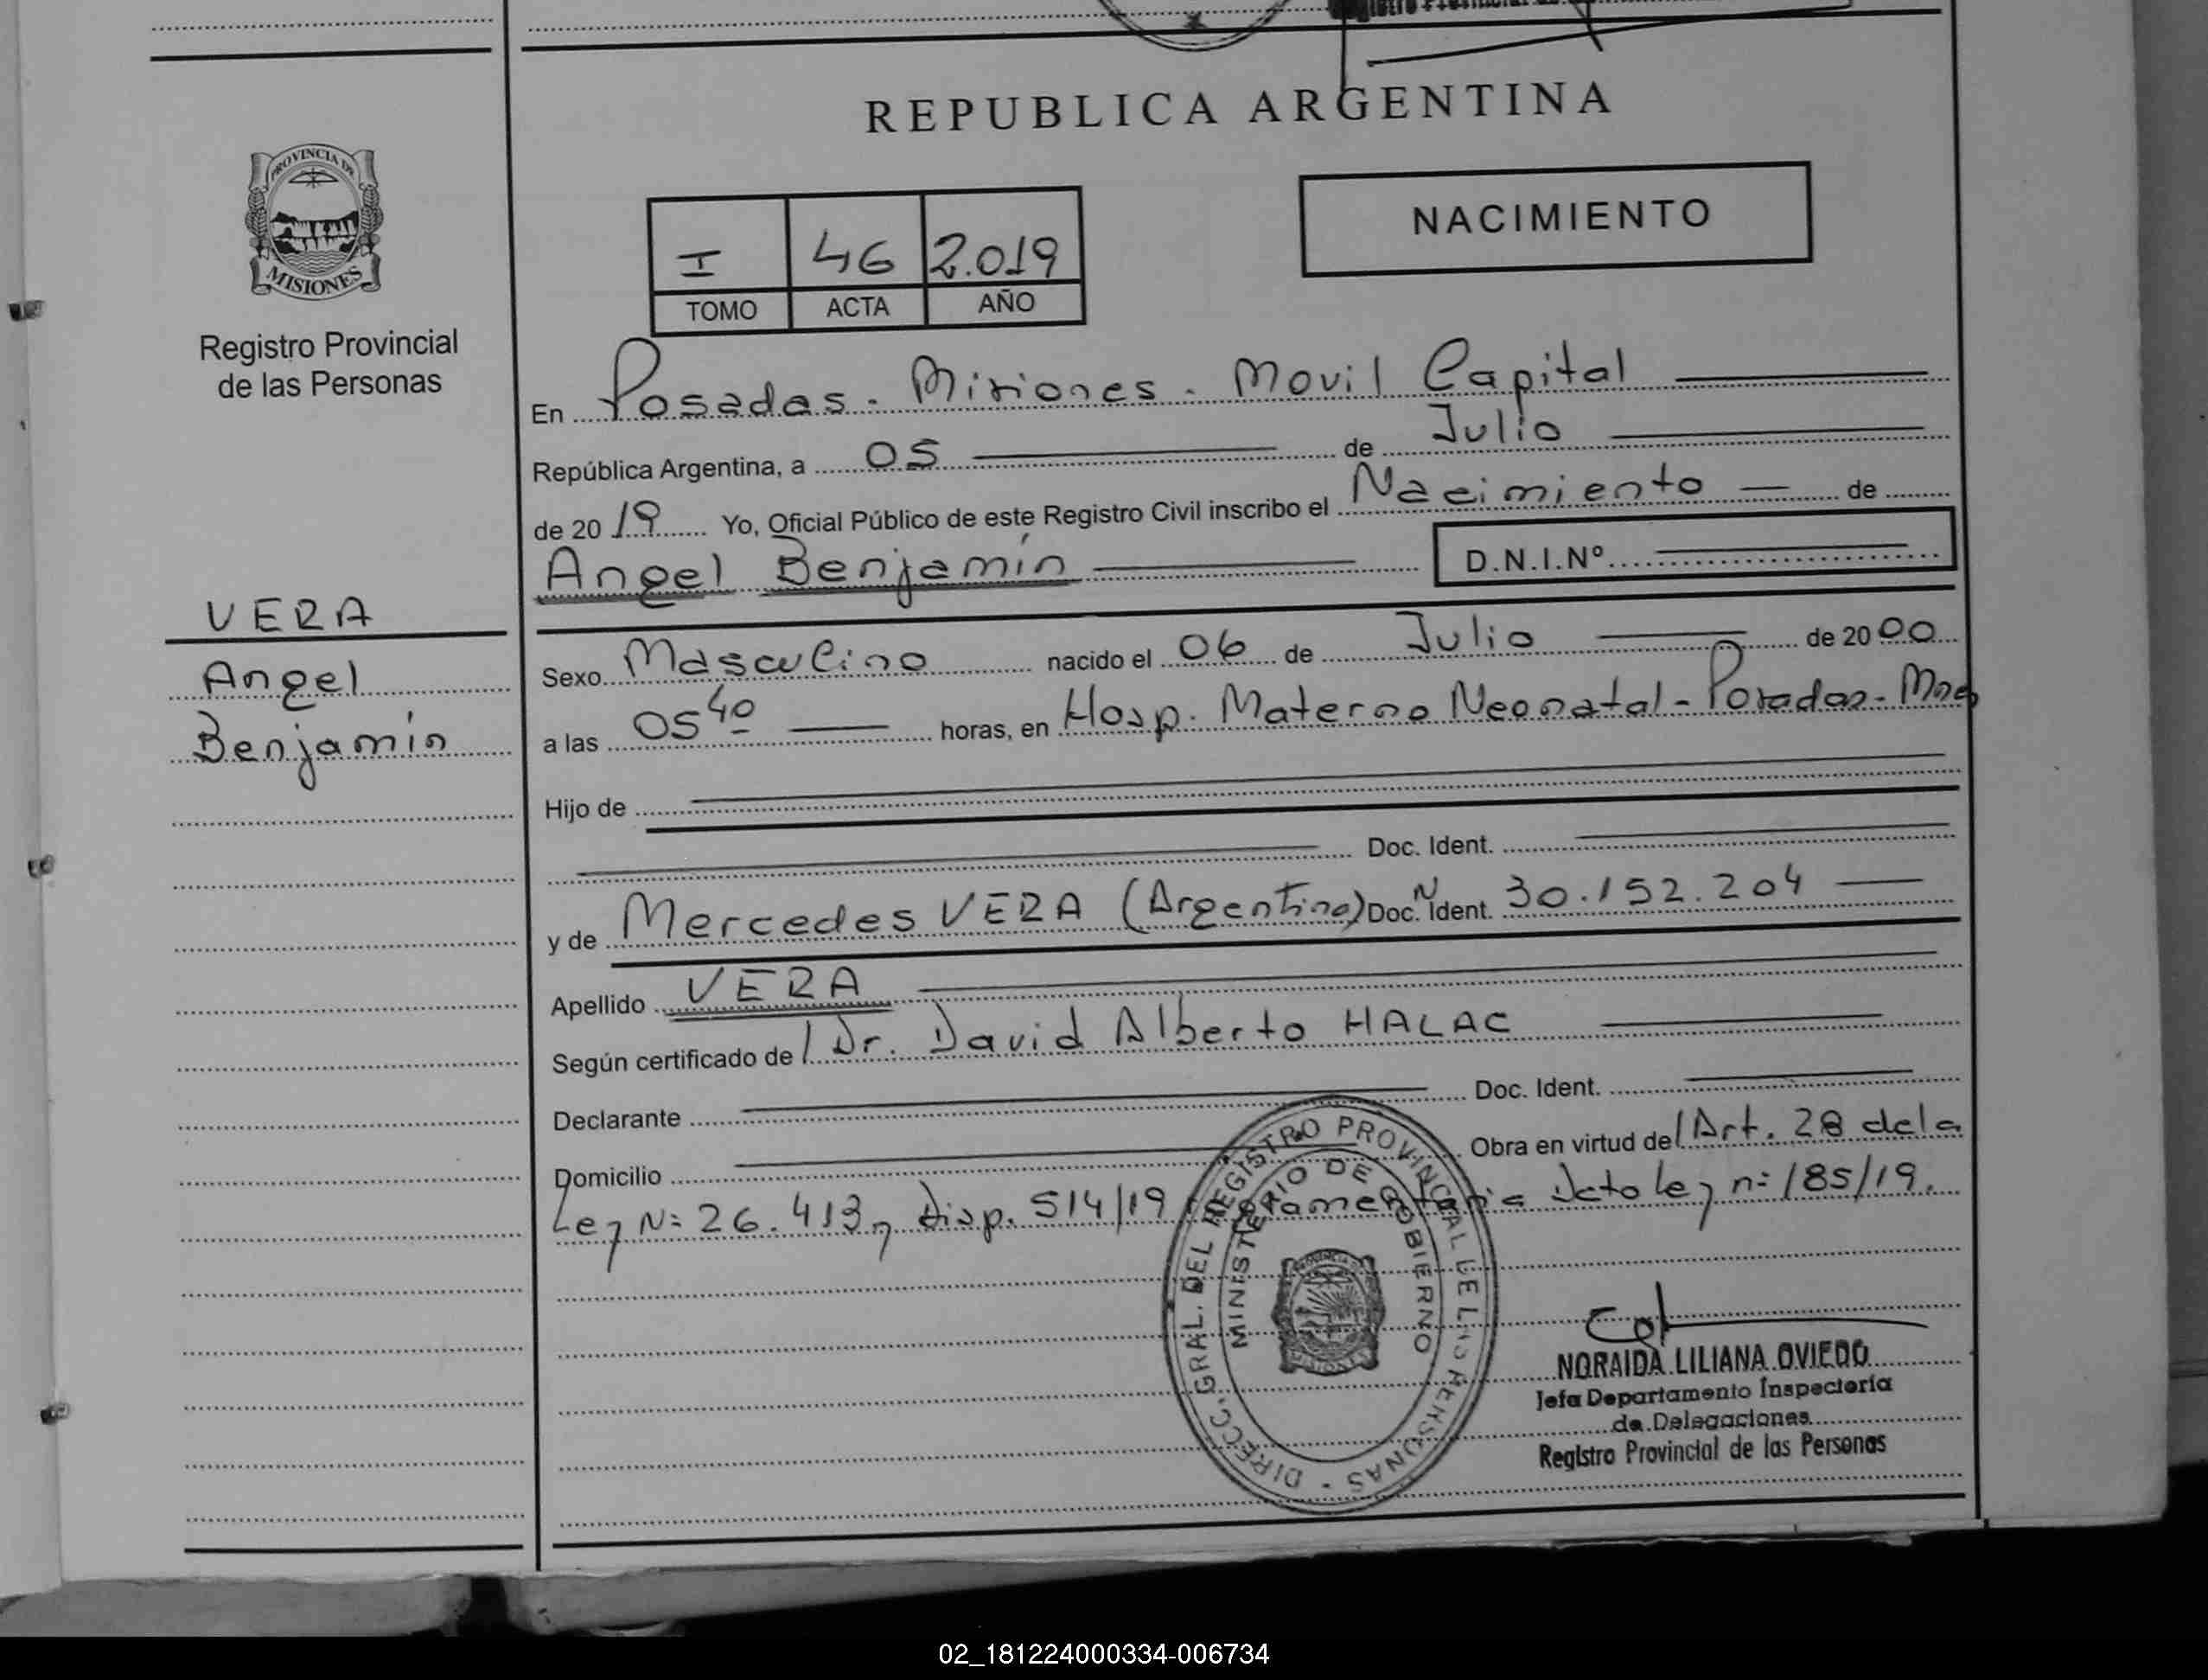 REPUBLICA ARGENTINA
PROVINCIA DE
MISIONES
Registro Provincial
de las Personas
NACIMIENTO
I 46 2.019
TOMO ACTA AÑO
En Posadas - Misiones - Movil Capital
República Argentina, a 05 de Julio
de 2019 Yo, Oficial Público de este Registro Civil inscribo el Nacimiento de
Angel Benjamín D.N.I.Nº
VERA
Angel
Benjamín
Sexo Masculino nacido el 06 de Julio de 2000
a las 05 40 horas, en Hosp. Materno Neonatal - Posadas - Mnes
Hijo de
Doc. Ident.
y de Mercedes VERA (Argentina) Doc. Ident. Nº 30.152.204
Apellido VERA
Según certificado de l Dr. David Alberto HALAC
Declarante Doc. Ident.
Domicilio Obra en virtud del Art. 28 de la
Ley Nº 26.413 y Disp. 514/19 Dcto ley nº 185/19.
DIRECC. GRAL. DEL REGISTRO PROVINCIAL DE LAS PERSONAS
MINISTERIO DE GOBIERNO
MISIONES
NORAIDA LILIANA OVIEDO
Jefa Departamento Inspectoria
de Delegaciones
Registro Provincial de las Personas
02_181224000334-006734